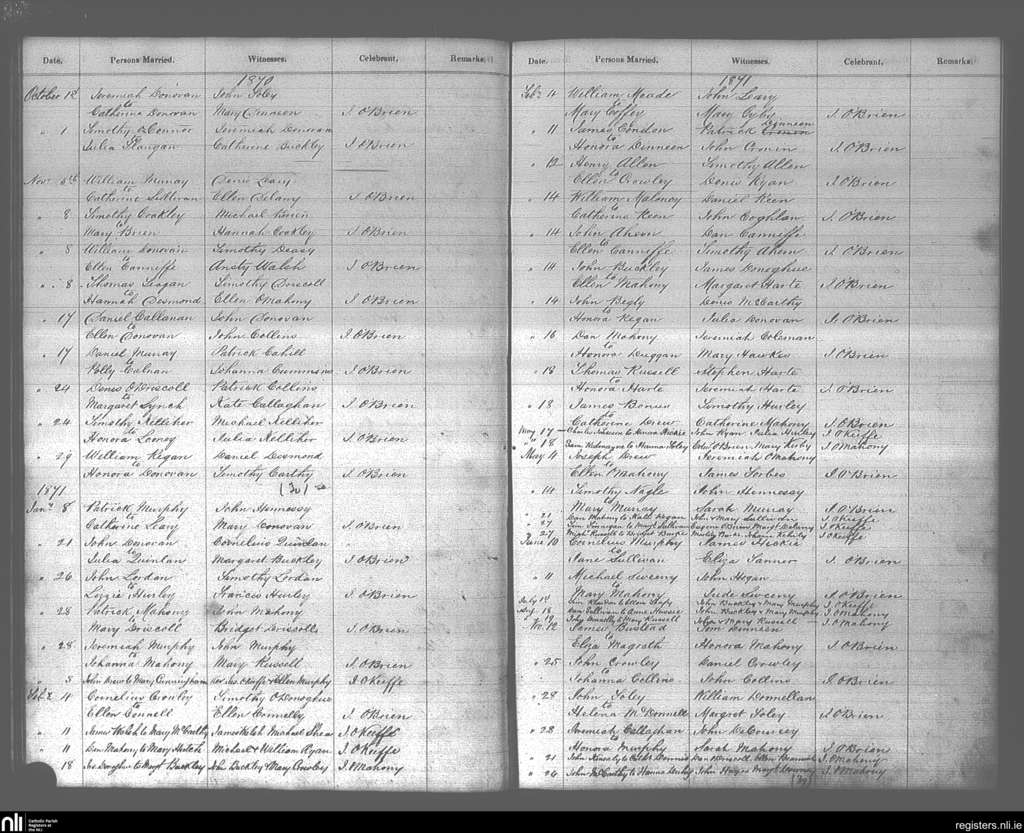 Date. Persons Married. Witnesses. Celebrant. Remarks.
1870
October 1st Jeremiah Donovan John Foley
to
Catherine Donovan Mary Dinneen J. O'Brien
" 1 Timothy O'Connor Jeremiah Donovan
to
Julia Flangan Catherine Buckley J. O'Brien
Nov. William Murray Denis Leary
to
Catherine Sullivan Ellen Delany J. O'Brien
" 8 Timothy Coakley Michael Brien
to
Mary Brien Hannah Coakley J. O'Brien
" 8 William Donovan Timothy Deasy
to
Ellen Canniffe Ansty Walsh J. O'Brien
" 8 Thomas Timothy Driscoll
to
Hannah Desmond Ellen O'Mahony J. O'Brien
" 17 Daniel Callanan John Donovan
to
Ellen Donovan John Collins J. O'Brien
" 17 Daniel Murray Patrick Cahill
to
Polly Calnan Johanna Cummins J. O'Brien
" 24 Denis O'Driscoll Patrick Collins
to
Margaret Lynch Kate Callaghan J. O'Brien
" 24 Timothy Kelliher Michael Kelliher
to
Honora Julia Kelliher J. O'Brien
" 29 William Regan Daniel Desmond
to
Honora Donovan Timothy Carthy J. O'Brien
1871
Jany 8 Patrick Murphy John Hennessy
to
Catherine Leary Mary Donovan J. O'Brien
" 21 John Donovan Cornelius Quinlan
to
Julia Quinlan Margaret Buckley J. O'Brien
" 26 John Lordan Timothy Lordan
to
Lizzie Hurley Frances Hurley J. O'Brien
" 28 Patrick Mahony John Mahony
to
Mary Driscoll Bridget Driscoll J. O'Brien
" 28 Jeremiah Murphy John Murphy
to
Johanna Mahony Mary Russell J. O'Brien
" 5 John Drew to Mary Cunningham O'Keeffe & Ellen Murphy J. O'Keiffe
Feb. 4 Cornelius Crowley Timothy O'Donoghue
to
Ellen Connell Ellen Connelly J. O'Brien
" 11 James Welsh to Mary McCarthy James Welsh Michael Shea J. O'Keiffe
" 11 Dan Mahony to Mary Michael & William Ryan J. O'Keiffe
" 18 to Margt Buckley John Buckley & Mary Crowley J. Mahony
Date. Persons Married. Witnesses. Celebrant. Remarks.
1871
Feb. 11 William Meade John Leary
to
Mary Mary J. O'Brien
" 11 James Condon Patrick Dinneen
to
Honora Dinneen John Cronin J. O'Brien
" 12 Henry Allen Timothy Allen
to
Ellen Crowley Denis Ryan J. O'Brien
" 14 William Maloney Daniel Keen
to
Catherine Keen John Coghlan J. O'Brien
" 14 John Ahern Dan Canniffe
to
Ellen Canniffe Timothy Ahern J. O'Brien
" 14 John Buckley James Donoghue
to
Ellen Mahony Margaret Harte J. O'Brien
" 14 John Begly Denis McCarthy
to
Honora Regan Julia Donovan J. O'Brien
" 16 Dan Mahony Jeremiah Coleman
to
Honora Duggan Mary Hawkes J. O'Brien
" 18 Thomas Russell Stephen Harte
to
Honora Harte Jeremiah Harte J. O'Brien
" 18 James Timothy Hurley
to
Catherine Drew Catherine Mahony J. O'Brien
May 17 Charles to Honora John Ryan Julia J. O'Keiffe
" 18 to Hanna Foley O'Brien Mary Kirby J. O'Mahony
May 4 Joseph Drew Jeremiah O'Mahony
to
Ellen Mahony James Forbes J. O'Brien
" 14 Timothy Nagle John Hennessy
to
Mary Murray Sarah Murray J. O'Brien
" 21 Dan Mahony to Kate Regan John & Mary Sullivan J. O'Keiffe
" 27 Finnegan to Margt Sullivan Eugene O'Brien Margt Delany J. O'Keiffe
" 27 Michl Russell to Bridget Burke J. O'Keiffe
June 10 Cornelius Murphy James
to
Jane Sullivan Eliza Tanner J. O'Brien
" 11 Michael Sweeny John Hogan
to
Mary Mahony Jude Sweeny J. O'Brien
July 18 to Ellen John Buckley & Mary Murphy J. O'Keiffe
Aug. 18 Dan Sullivan to Anne John Buckley & Mary Murphy J. O'Mahony
" 19 to Mary Russell John & Mary Russell J. O'Mahony
12 James Bustead Tom Dinneen
to
Eliza Magrath Honora Mahony J. O'Brien
" 25 John Crowley Daniel Crowley
to
Johanna Collins John Collins J. O'Brien
" 28 John Foley William Donnellan
to
Helena McDonnell Margret Foley J. O'Brien
" 28 Jeremiah Callaghan John DeCourcey
to
Honora Murphy Sarah Mahony J. O'Brien
" 21 John to Cathe Dan O'Driscoll Ellen J. O'Mahony
" 26 John McCarthy to Hanna John Hayes J. O'Mahony
nli Catholic Parish
Registers at
the NLI
registers.nli.ie